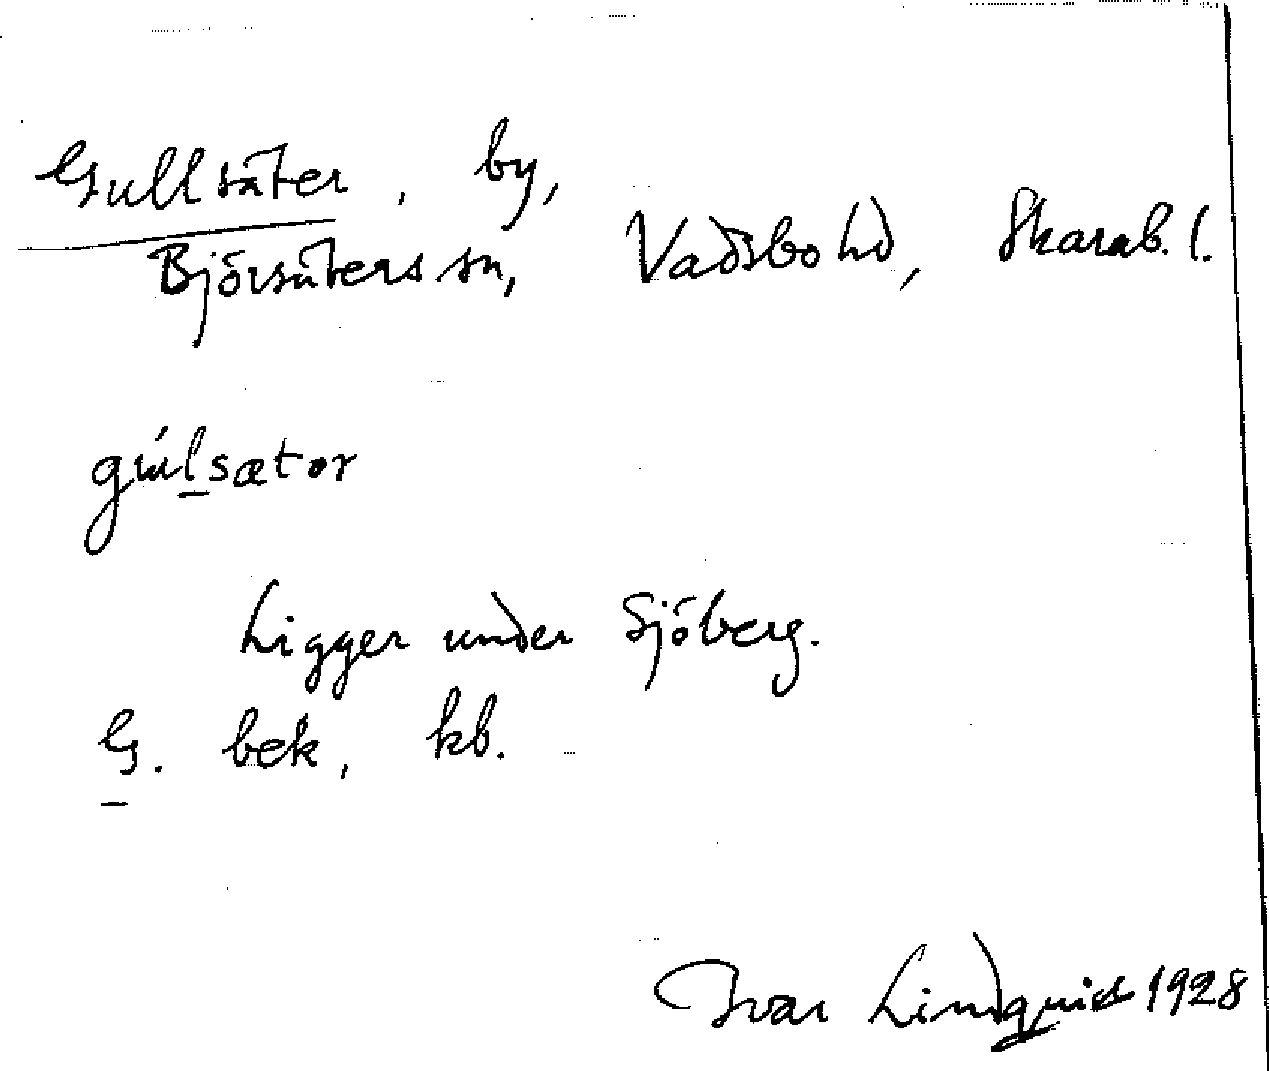 Gullsäter, by,
Björsäters sn, Vadsbo hd, Skarab. l.
gúlsætor
Ligger under Sjöberg.
G. bek, kb.
Ivar Lindquist 1928